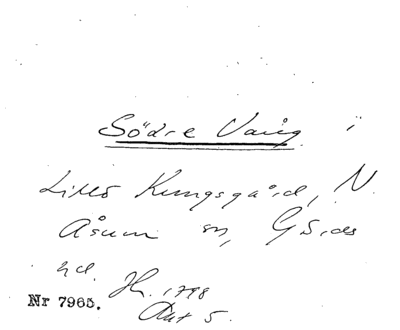 Södre Vång i
Lilló Kungsgård, N.
Åsum sn, Gärds
hd. Hr. 1798
Akt 5.
Nr 7965.